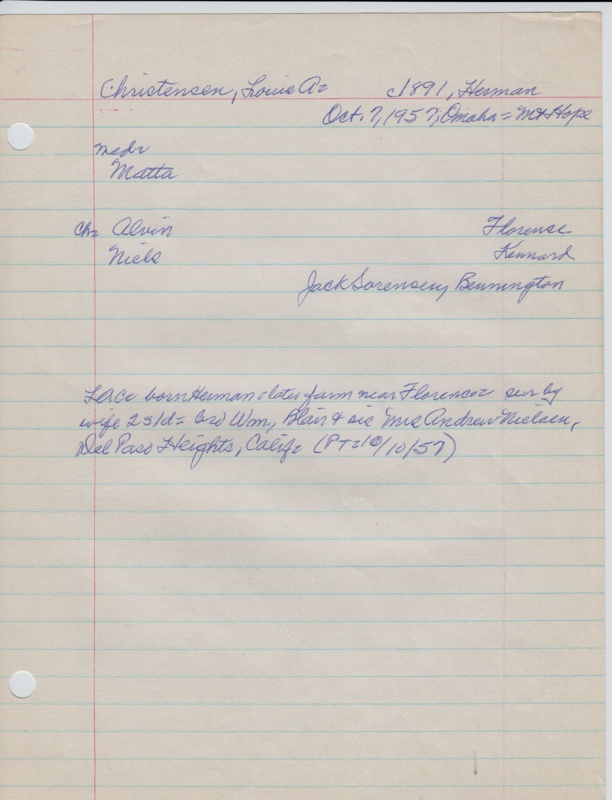 Christensen, Louis A= c1891, Herman
Oct. 7, 1957, Omaha = Mt Hope
medr
Matta
ch= Alvin Florence
Niels Kennard
Jack Sorensen, Bennington
LAC= born Herman = later farm near Florence = sur by
wife 2s1d= bro Wm, Blair & sis Mrs Andrew Nielsen,
Del Paso Heights, Calif= (PT=10/10/57)